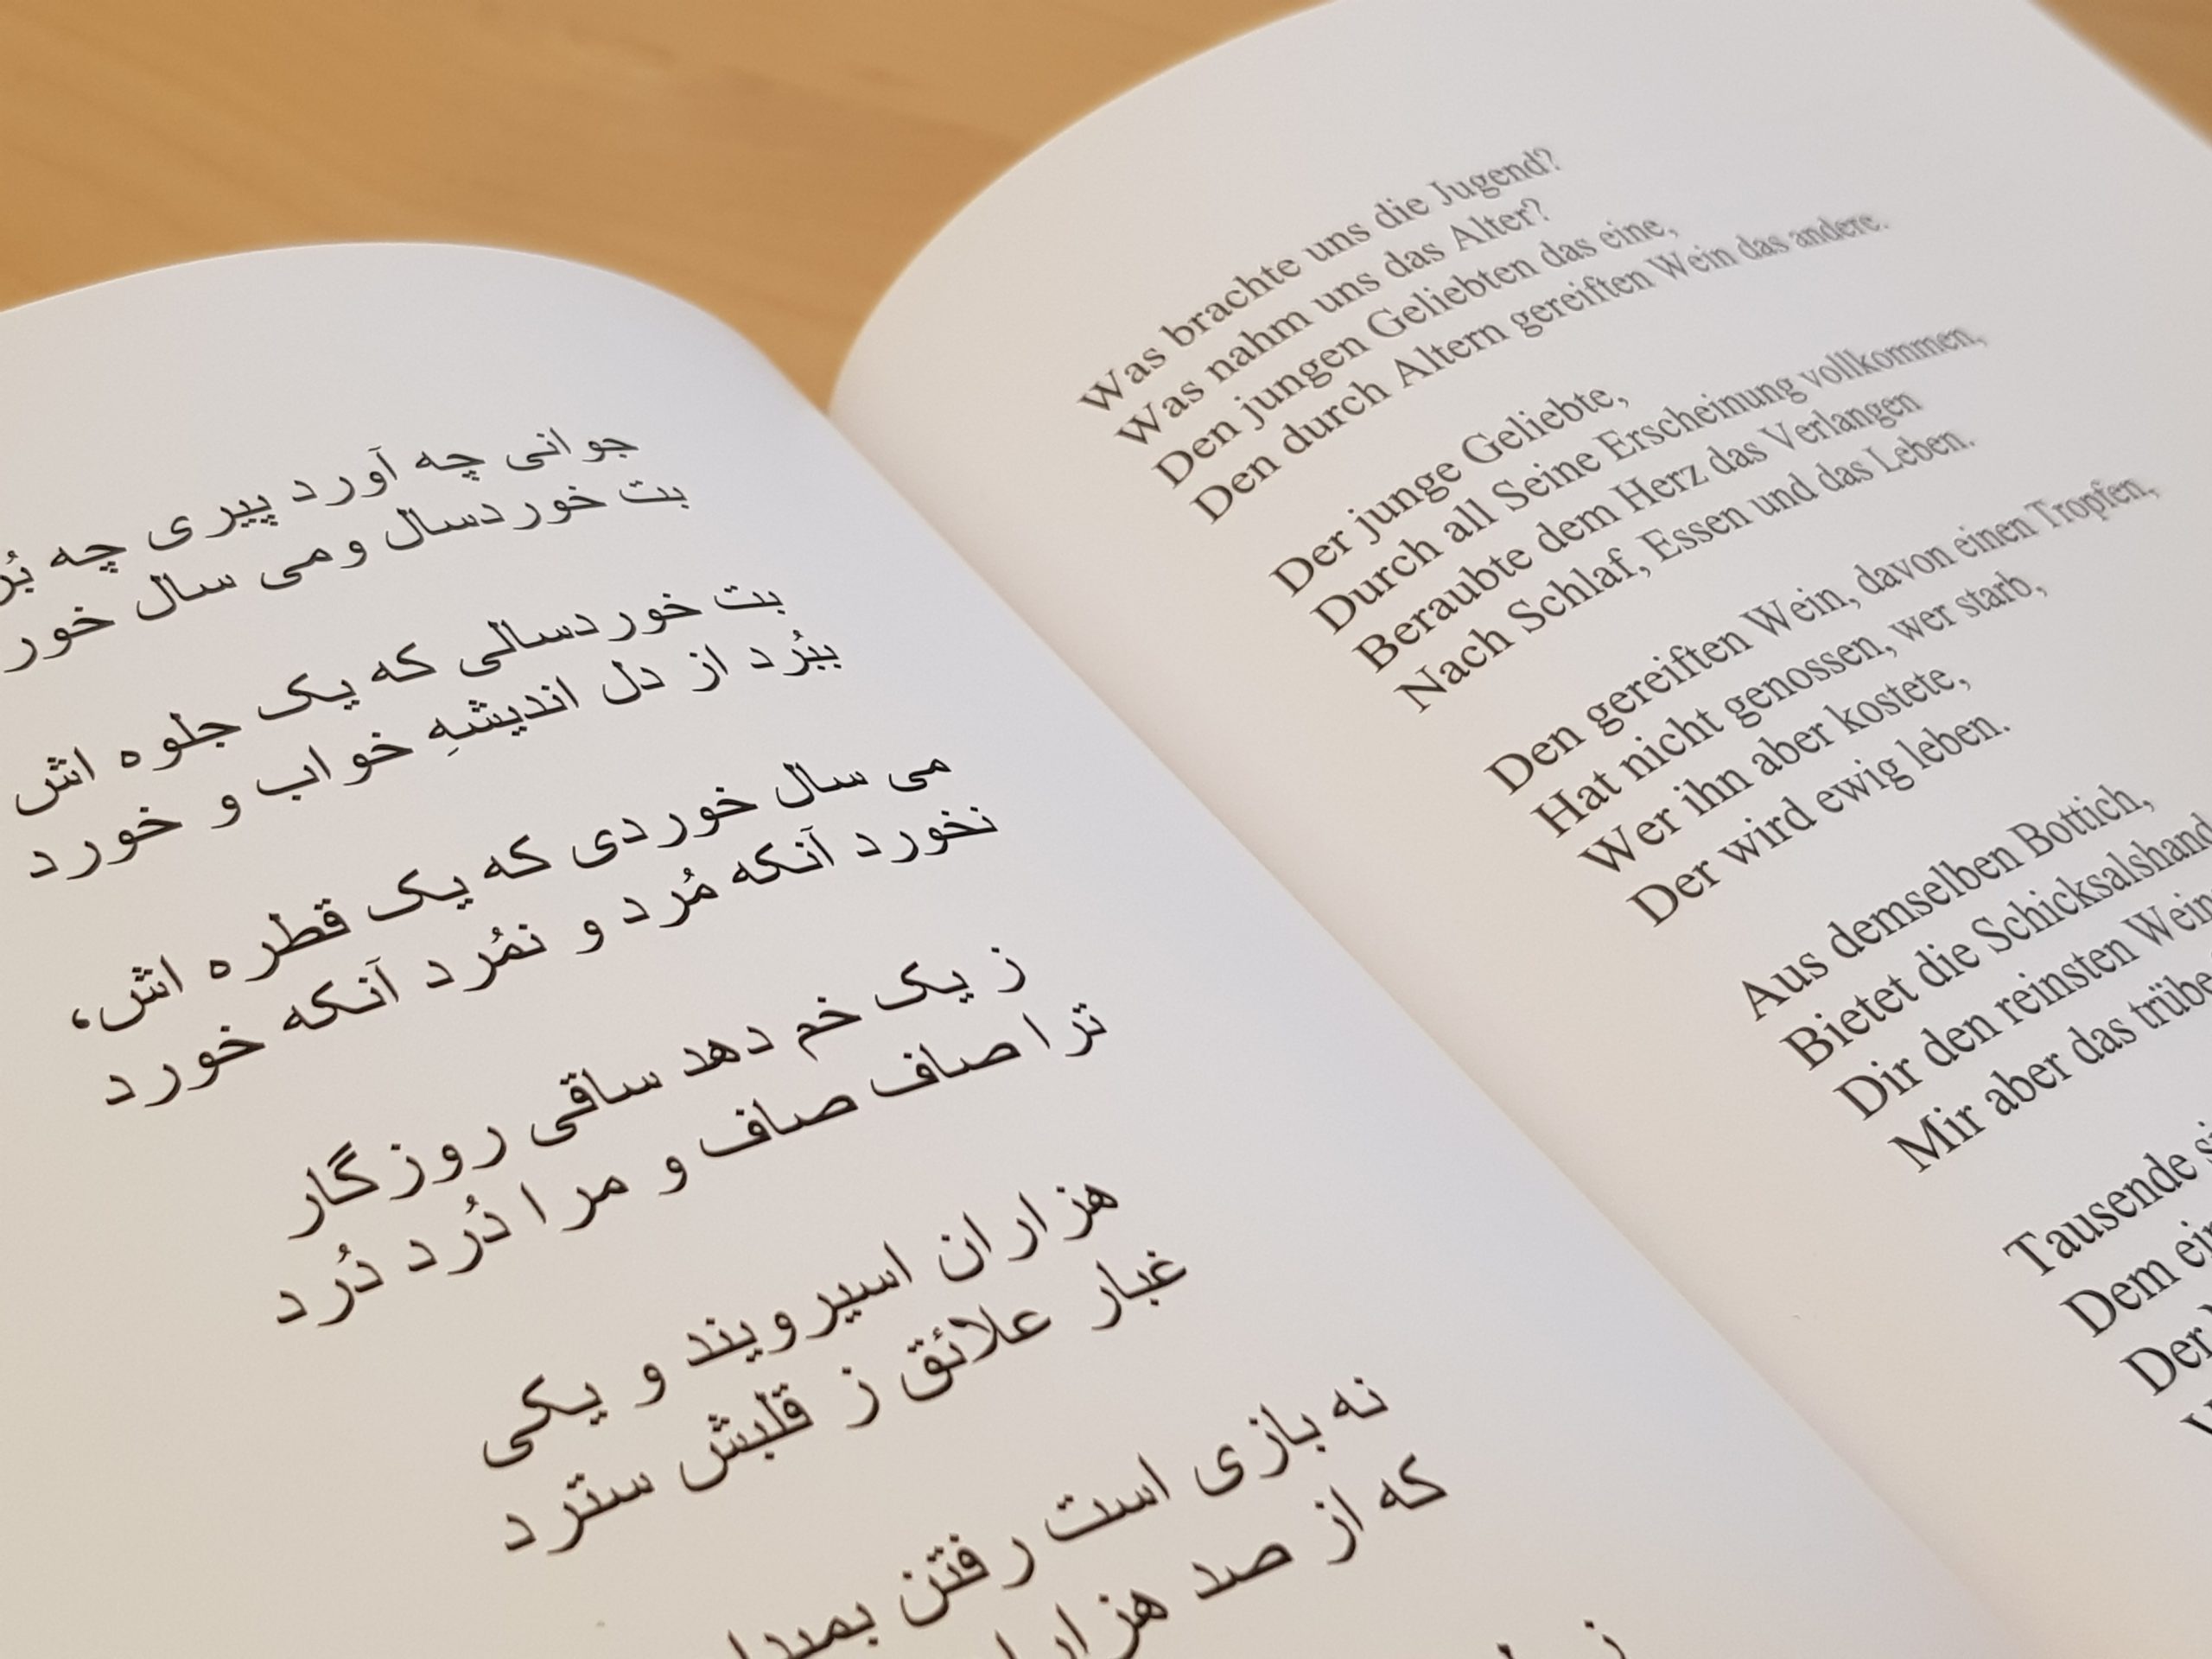 جوانی چه آورد پیری چه
بت خوردسال و می سال خور
بت خوردسالی که یک جلوه اش
ببُرد از دل اندیشهِ خواب و خورد
می سال خوردی که یک قطره اش،
نخورد آنکه مُرد و نمُرد آنکه خورد
ز یک خم دهد ساقی روزگار
ترا صاف صاف و مرا دُرد دُرد
هزاران اسیرویند و یکی
غبار علائق ز قلبش سترد
نه بازی است رفتن
که از صد
Was brachte uns die Jugend?
Was nahm uns das Alter?
Den jungen Geliebten das eine,
Den durch Altern gereiften Wein das andere.
Der junge Geliebte,
Durch all Seine Erscheinung vollkommen,
Beraubte dem Herz das Verlangen
Nach Schlaf, Essen und das Leben.
Den gereiften Wein, davon einen Tropfen,
Hat nicht genossen, wer starb,
Wer ihn aber kostete,
Der wird ewig leben.
Aus demselben Bottich,
Bietet die Schicksalshand
Dir den reinsten Wein
Mir aber das trübe
Tausende
Dem
Der